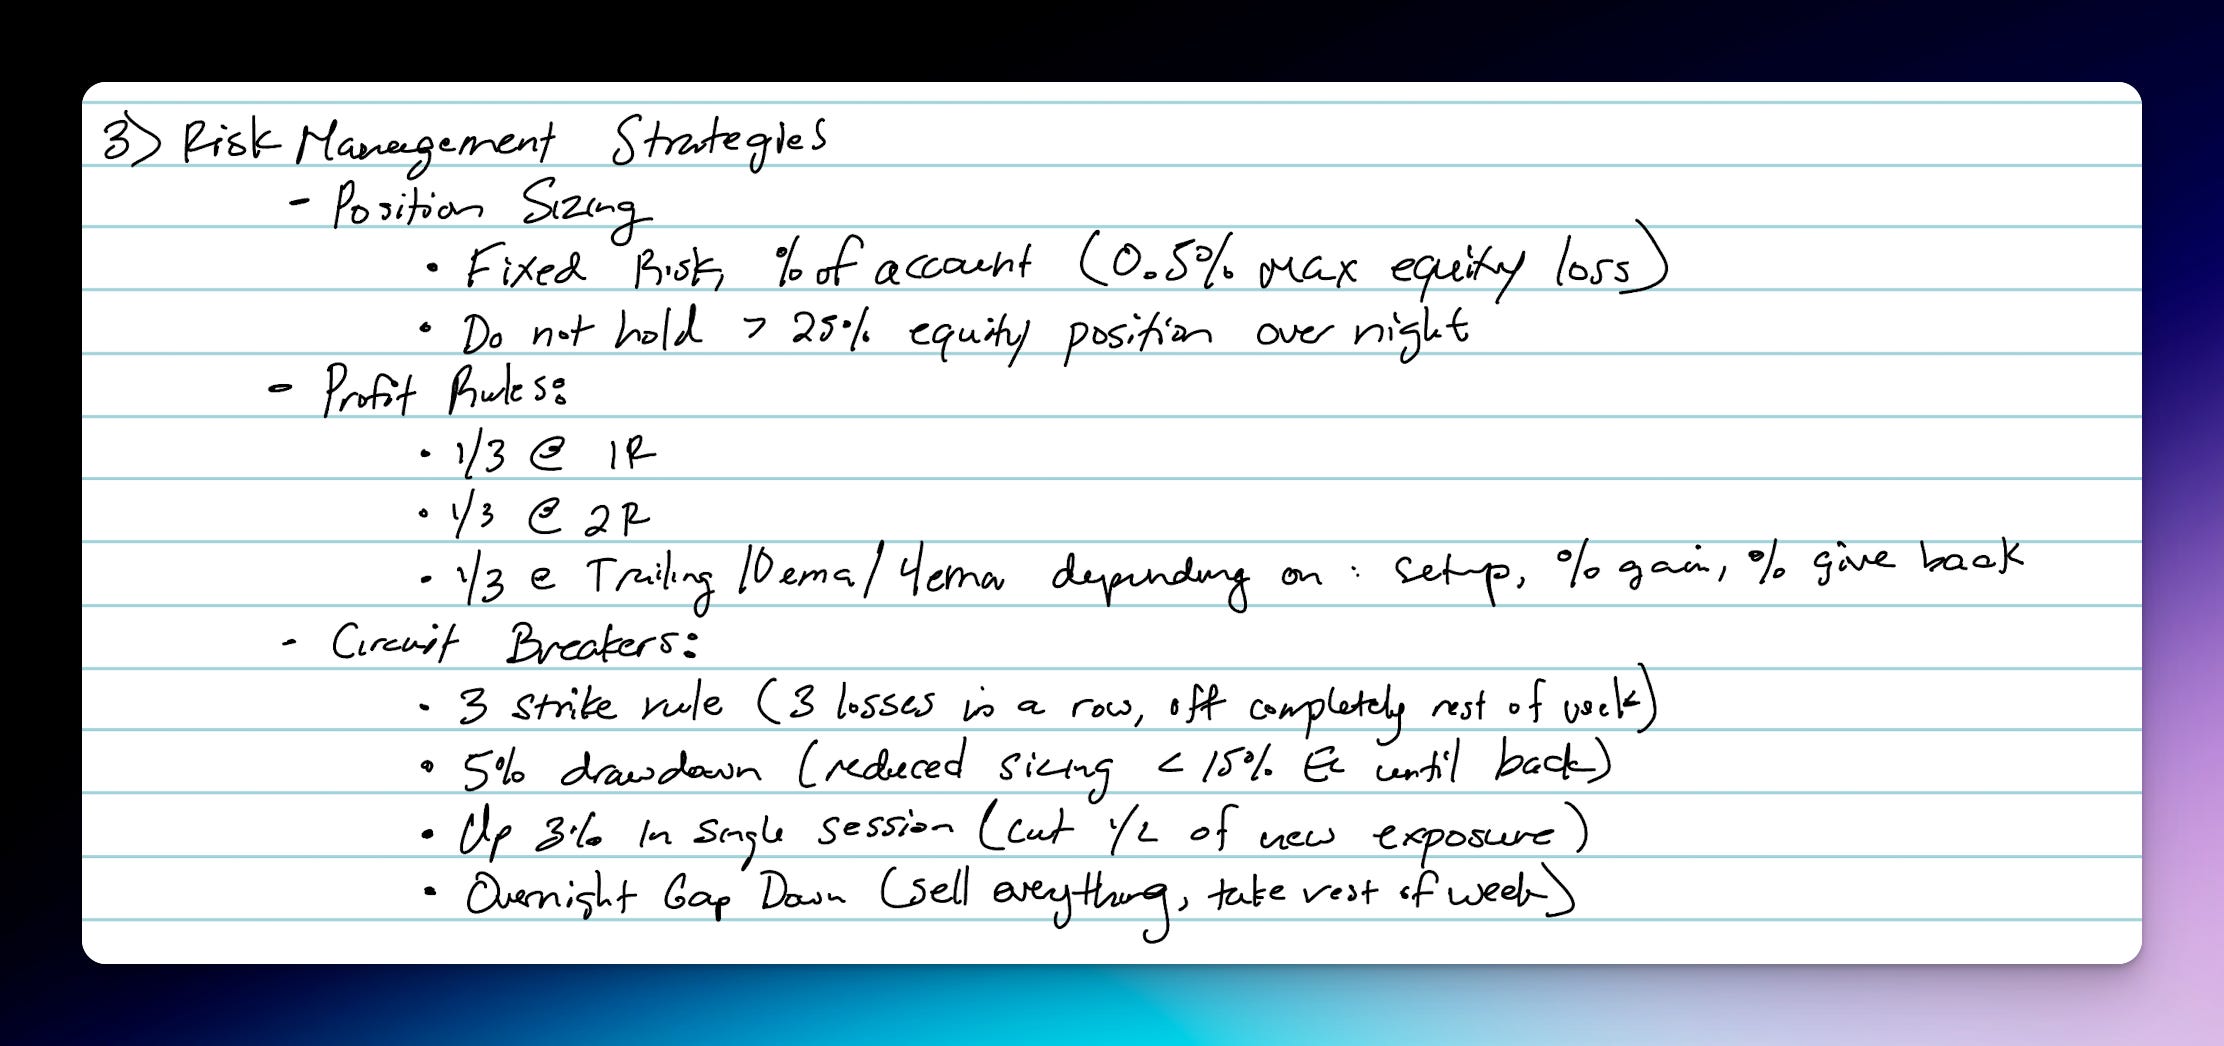 3) Risk Management Strategies
- Position Sizing
• Fixed Risk, % of account (0.5% max equity loss)
• Do not hold > 25% equity position over night
- Profit Rules:
• 1/3 @ 1R
• 1/3 @ 2R
• 1/3 @ Trailing 10ema/4ema depending on: setup, % gain, % give back
- Circuit Breakers:
• 3 strike rule (3 losses in a row, off completely rest of week)
• 5% drawdown (reduced sizing < 15% until back)
• Up 3% in single session (cut 1/2 of new exposure)
• Overnight Gap Down (sell everything, take rest of week)